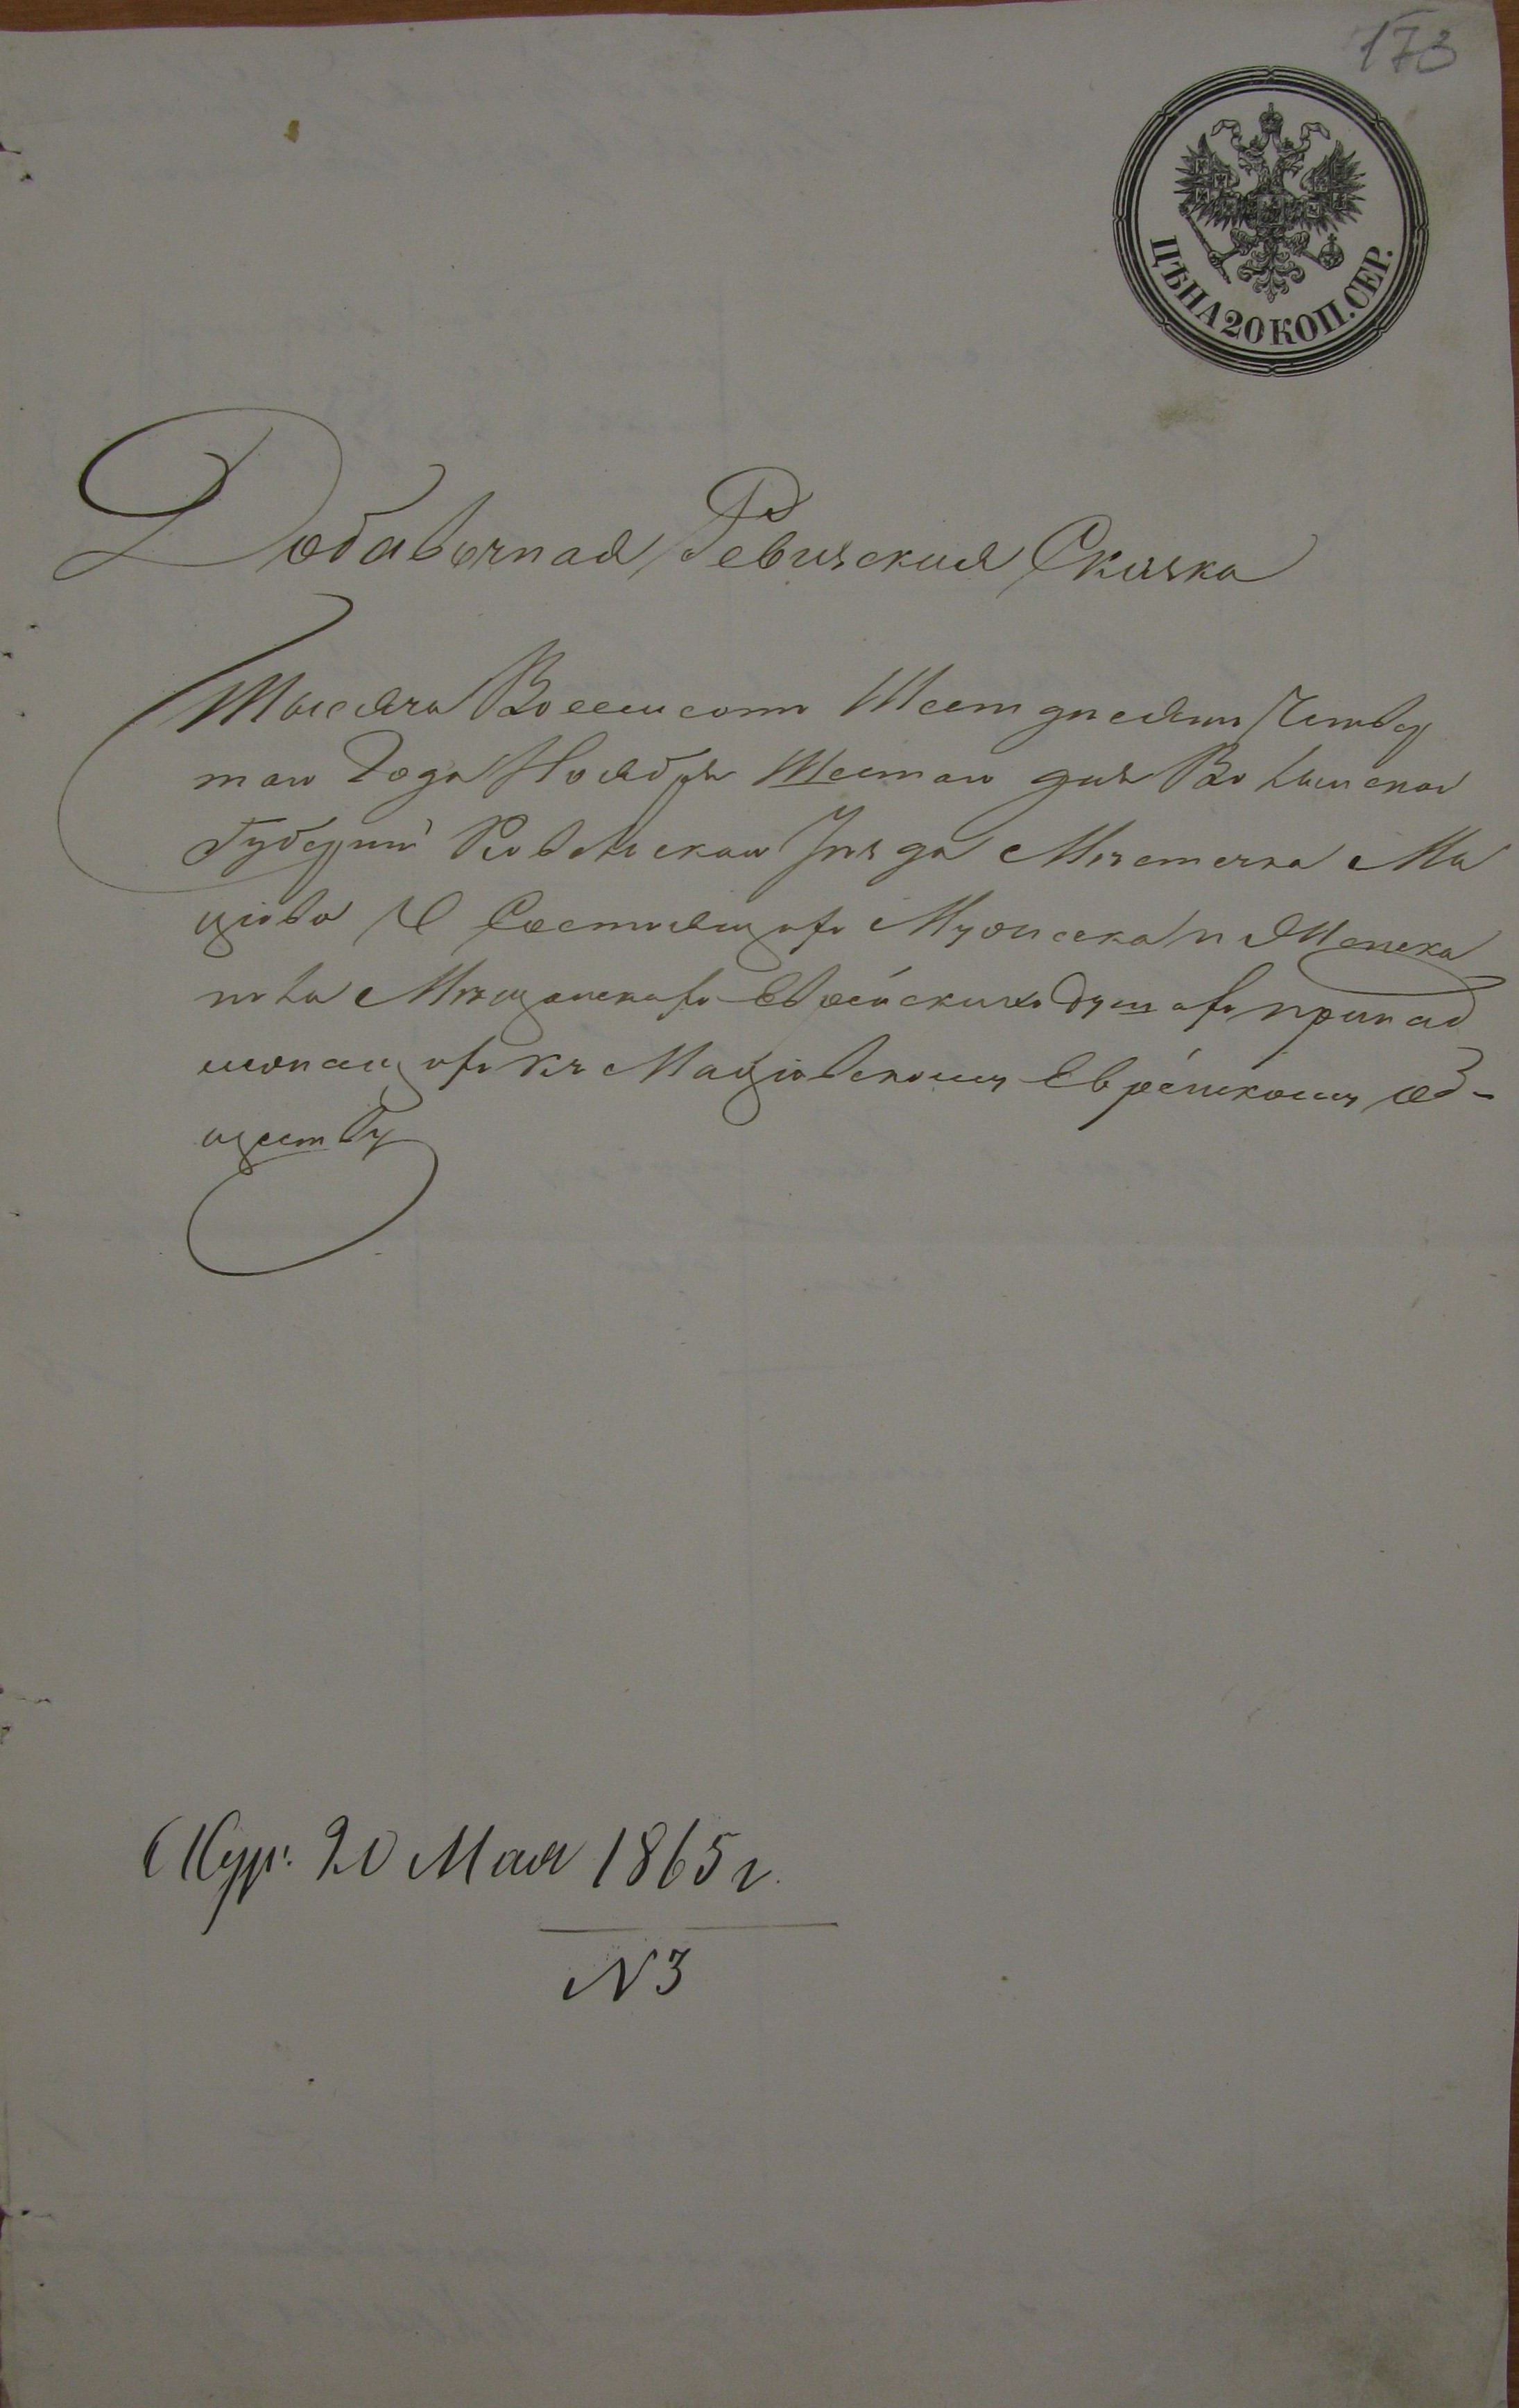 173
ЦѢНА 20 КОП. СЕР.
Добавочная Ревизская Сказка
Тысяча Восемсотъ Шестдесятъ Четвер
таго Года Ноября Шестаго дня Волынской
Губерніи Ковельскаго Уѣзда Мѣстечка Ма
ціова О Состоящихъ Мужеска и Женска
пола Мѣщанскаго Еврейскихъ душахъ принад
лежащихъ къ Маціовскому Еврейскому об-
ществу
Жур. 20 Мая 1865 г.
N 3